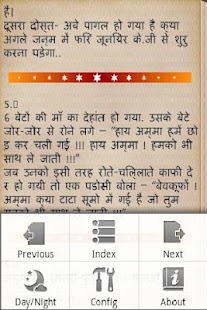 है।
दूसरा दोस्त- अबे पागल हो गया है क्या
अगले जन्म में फिर जूनियर के.जी से शुरु
करना पड़ेगा..
5.
6 बेटों की माँ का देहांत हो गया. वे बेटे
जोर-जोर से रोने लगे – "हाय अम्मा हमे छो
ड़ कर चली गई !!! हाय अम्मा ! हमको भी
साथ ले जाती !!!"
जब उनको इसी तरह रोते-चिलाते काफी दे
र हो गयी तो एक पड़ोसी बोला – "बेवकूफों !
अम्मा क्या टाटा सूमो में गई है जो तुम
Previous Index Next
Day/Night Config About